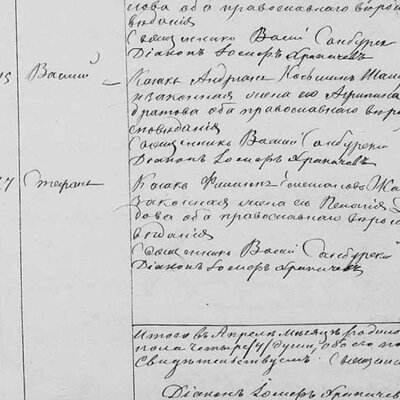 това оба православнаго вѣро
исповѣданія
Священникъ Васил Санбурск
Діаконъ Іосифъ Храпачевъ
Васил
Козакъ Андреанъ Козьминъ
и законная жена его Агрипина
братова оба православнаго вѣро
исповѣданія
Священникъ Васил Санбурски
Діаконъ Іосифъ Храпачевъ
Стефанъ
Козакъ Филипъ Симеоновъ
Законная жена его
дова оба православнаго вѣроис
вѣданія
Священникъ Васил Санбурски
Діаконъ Іосифъ Храпачевъ
Итого въ Апрелѣ мѣсяцѣ родило
пола четыре /4/ души, оба его по
Свидѣтельствуемъ: Священни
Діаконъ Іосифъ Храпачевъ